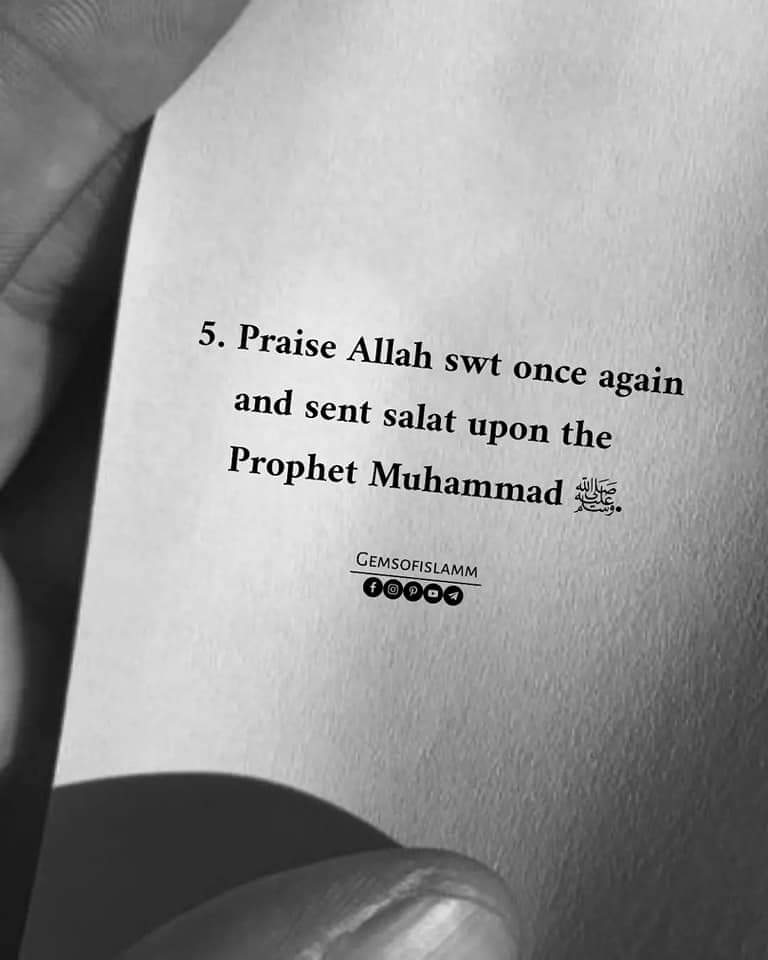 5. Praise Allah swt once again
and sent salat upon the
Prophet Muhammad ﷺ.
GEMSOFISLAMM